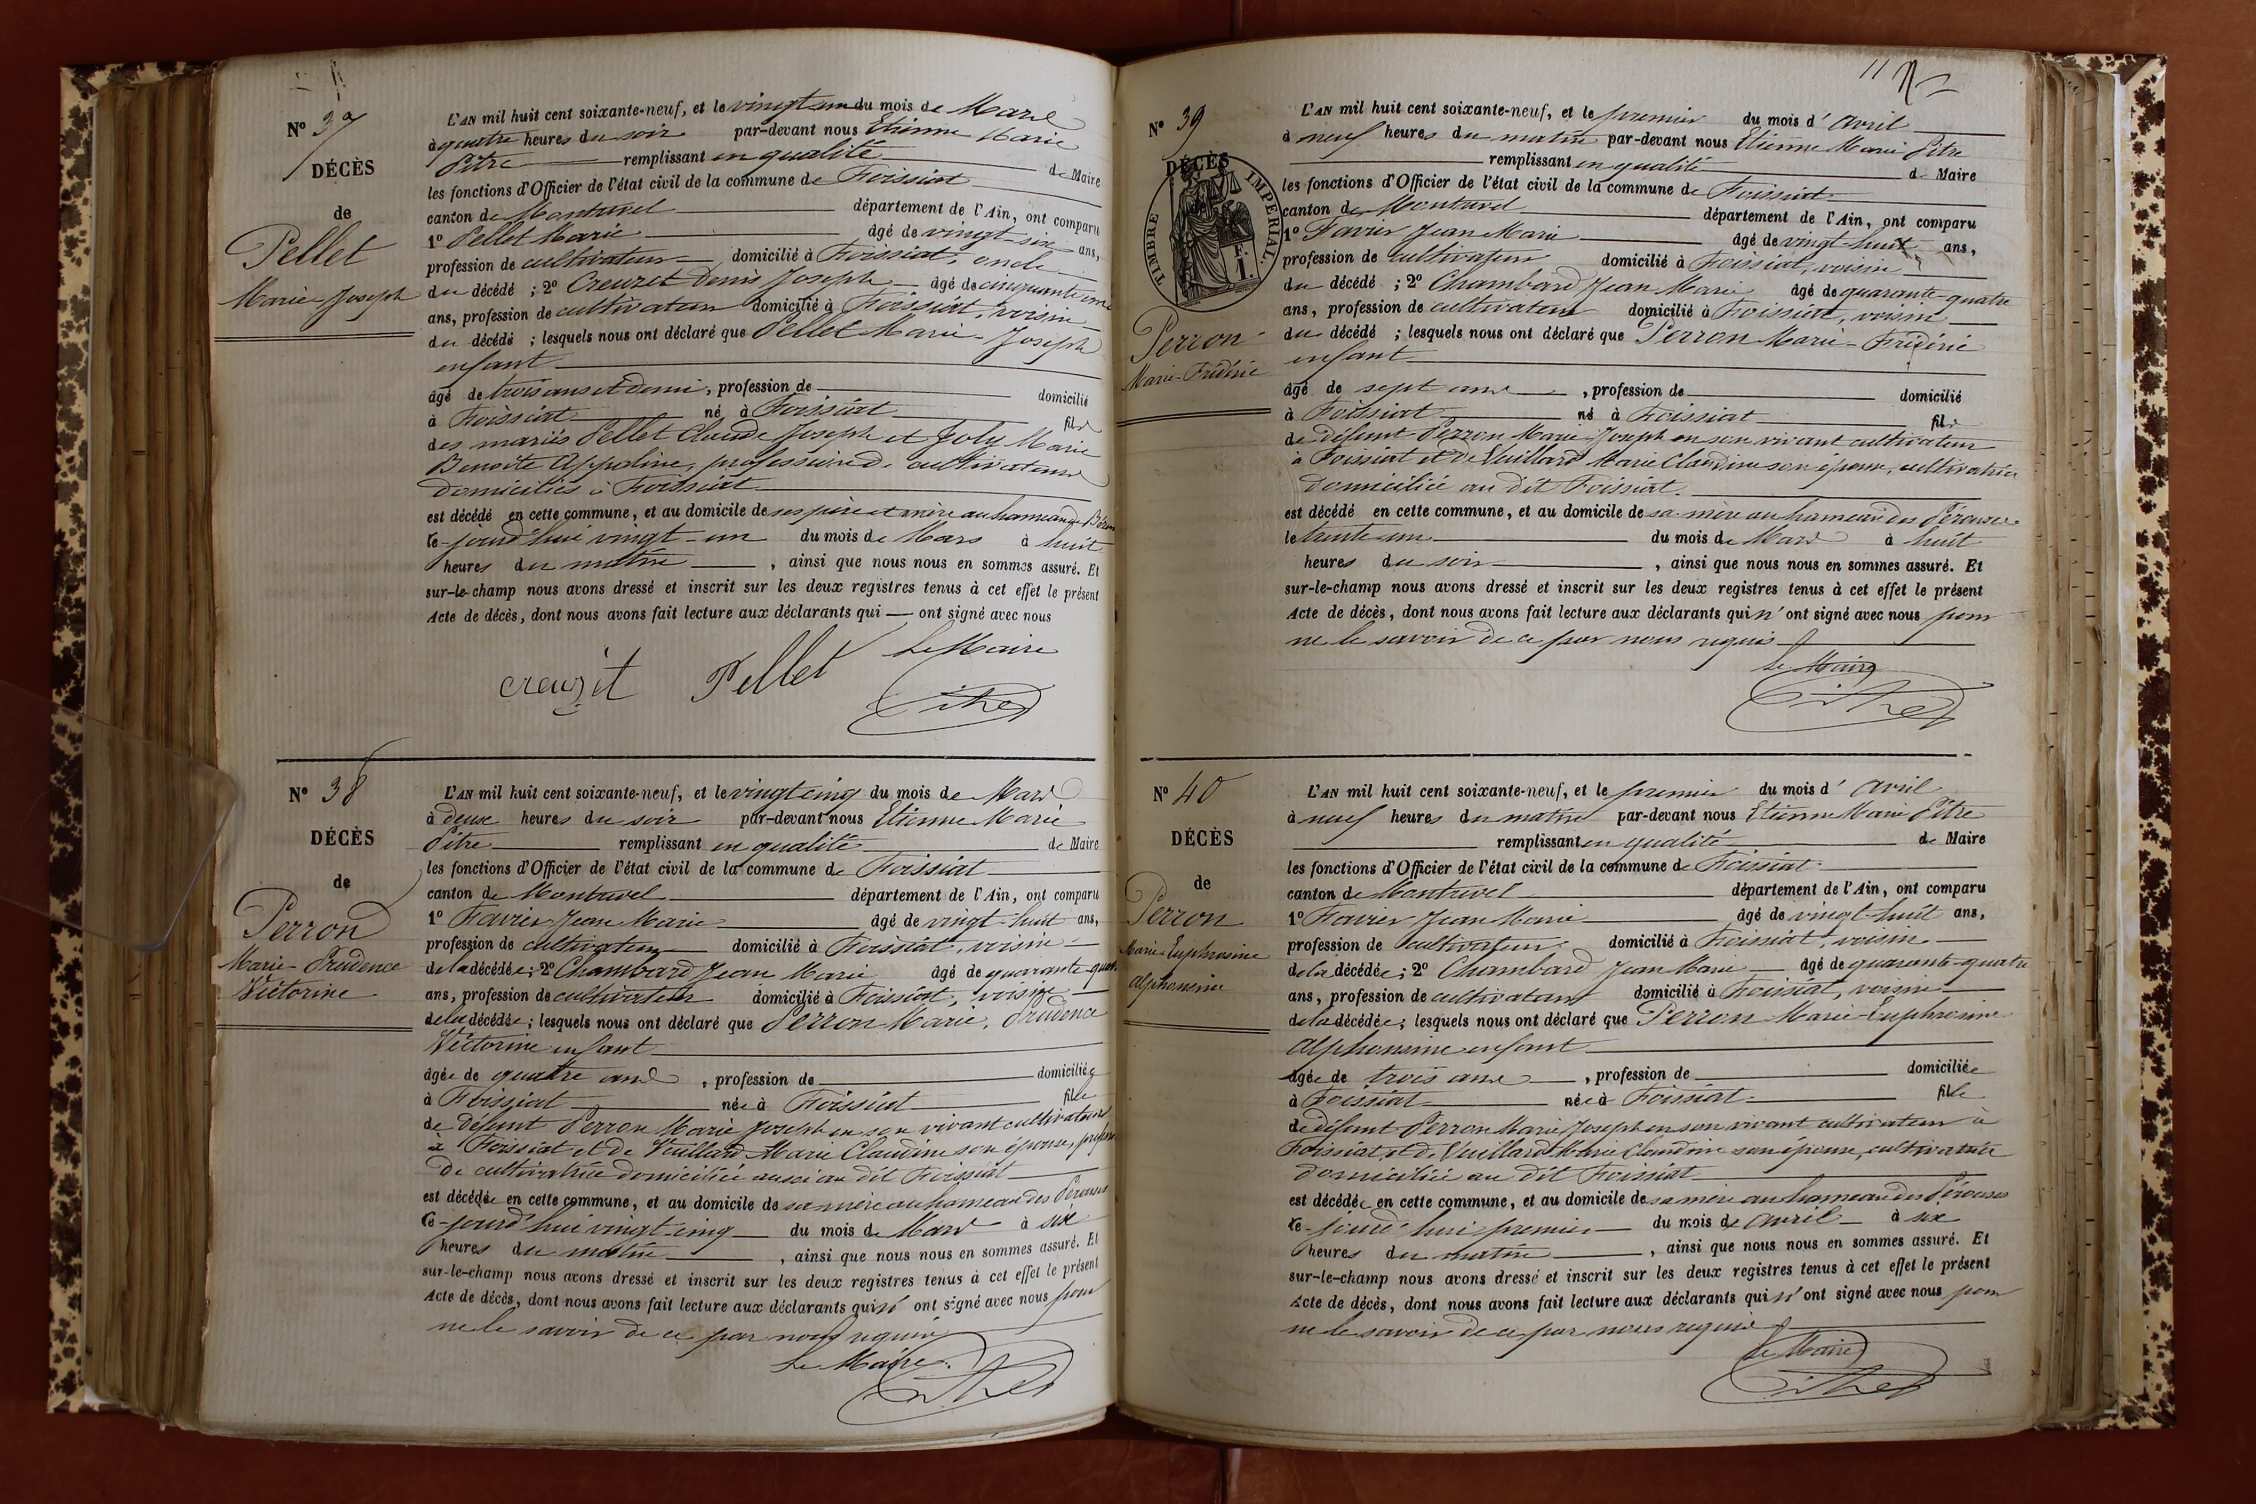 N° 37
DÉCÈS
de
Pellet
Marie Joseph
L'AN mil huit cent soixante-neuf, et le vingt un du mois de Mars
à quatre heures du soir par-devant nous Etienne Marie
Pitre remplissant en qualité de Maire
les fonctions d'Officier de l'état civil de la commune de Foissiat
canton de Montrevel département de l'Ain, ont comparu
1° Pellet Marie âgé de vingt-six ans,
profession de cultivateur domicilié à Foissiat, oncle
du décédé ; 2° Creuzet Denis Joseph âgé de cinquante une
ans, profession de cultivateur domicilié à Foissiat, voisin
du décédé ; lesquels nous ont déclaré que Pellet Marie-Joseph
enfant
âgé de trois ans et demi, profession de domicilié
à Foissiat né à Foissiat fils
des mariés Pellet Claude Joseph et Joly Marie
Benoite Appoline, professions de cultivateurs
domiciliés à Foissiat
est décédé en cette commune, et au domicile de ses père et mère au hameau de
ce-jourd'hui vingt-un du mois de Mars à huit
heures du matin, ainsi que nous nous en sommes assuré. Et
sur-le-champ nous avons dressé et inscrit sur les deux registres tenus à cet effet le présent
Acte de décès, dont nous avons fait lecture aux déclarants qui — ont signé avec nous
Le Maire
creuzet Pellet Pitre
N° 38
DÉCÈS
de
Perron
Marie-Prudence
Victorine
L'AN mil huit cent soixante-neuf, et le vingt cinq du mois de Mars
à deux heures du soir par-devant nous Etienne Marie
Pitre remplissant en qualité de Maire
les fonctions d'Officier de l'état civil de la commune de Foissiat
canton de Montrevel département de l'Ain, ont comparu
1° Favier Jean Marie âgé de vingt-huit ans,
profession de cultivateur domicilié à Foissiat, voisin
de la décédée ; 2° Chambard Jean Marie âgé de quarante-quatre
ans, profession de cultivateur domicilié à Foissiat, voisin
de la décédée ; lesquels nous ont déclaré que Perron Marie, Prudence
Victorine enfant
âgée de quatre ans, profession de domiciliée
à Foissiat née à Foissiat fille
de défunt Perron Marie Joseph en son vivant cultivateur
à Foissiat et de Vuillard Marie Claudine son épouse, profession
de cultivatrice domiciliée aussi au dit Foissiat
est décédée en cette commune, et au domicile de sa mère au hameau des Pérouses
ce-jourd'hui vingt-cinq du mois de Mars à six
heures du matin, ainsi que nous nous en sommes assuré. Et
sur-le-champ nous avons dressé et inscrit sur les deux registres tenus à cet effet le présent
Acte de décès, dont nous avons fait lecture aux déclarants qui n'ont signé avec nous pour
ne le savoir de ce par nous requis
Le Maire
Pitre
11
N° 39
DÉCÈS
TIMBRE IMPERIAL
F.
1.
Perron
Marie-Frédéric
L'AN mil huit cent soixante-neuf, et le premier du mois d'avril
à neuf heures du matin par-devant nous Etienne Marie Pitre
remplissant en qualité de Maire
les fonctions d'Officier de l'état civil de la commune de Foissiat
canton de Montrevel département de l'Ain, ont comparu
1° Favier Jean Marie âgé de vingt-huit ans,
profession de cultivateur domicilié à Foissiat, voisin
du décédé ; 2° Chambard Jean Marie âgé de quarante-quatre
ans, profession de cultivateur domicilié à Foissiat, voisin
du décédé ; lesquels nous ont déclaré que Perron Marie-Frédéric
enfant
âgé de sept ans, profession de domicilié
à Foissiat né à Foissiat fils
de défunt Perron Marie-Joseph en son vivant cultivateur
à Foissiat et de Vuillard Marie Claudine son épouse, cultivatrice
domiciliée au dit Foissiat.
est décédé en cette commune, et au domicile de sa mère au hameau des Pérouses
le trente-un du mois de Mars à huit
heures du soir, ainsi que nous nous en sommes assuré. Et
sur-le-champ nous avons dressé et inscrit sur les deux registres tenus à cet effet le présent
Acte de décès, dont nous avons fait lecture aux déclarants qui n'ont signé avec nous pour
ne le savoir de ce par nous requis
Le Maire
Pitre
N° 40
DÉCÈS
de
Perron
Marie-Euphrosine
alphonsine
L'AN mil huit cent soixante-neuf, et le premier du mois d'avril
à neuf heures du matin par-devant nous Etienne Marie Pitre
remplissant en qualité de Maire
les fonctions d'Officier de l'état civil de la commune de Foissiat
canton de Montrevel département de l'Ain, ont comparu
1° Favier Jean Marie âgé de vingt-huit ans,
profession de cultivateur domicilié à Foissiat, voisin
de la décédée ; 2° Chambard Jean Marie âgé de quarante-quatre
ans, profession de cultivateur domicilié à Foissiat, voisin
de la décédée ; lesquels nous ont déclaré que Perron Marie-Euphrosine
alphonsine enfant
âgée de trois ans, profession de domiciliée
à Foissiat née à Foissiat fille
de défunt Perron Marie Joseph en son vivant cultivateur à
Foissiat, et de Vuillard Marie Claudine son épouse, cultivatrice
domiciliée au dit Foissiat
est décédée en cette commune, et au domicile de sa mère au hameau des Pérouses
ce-jourd'hui premier du mois de avril à six
heures du matin, ainsi que nous nous en sommes assuré. Et
sur-le-champ nous avons dressé et inscrit sur les deux registres tenus à cet effet le présent
Acte de décès, dont nous avons fait lecture aux déclarants qui n'ont signé avec nous pour
ne le savoir de ce par nous requis
Le Maire
Pitre